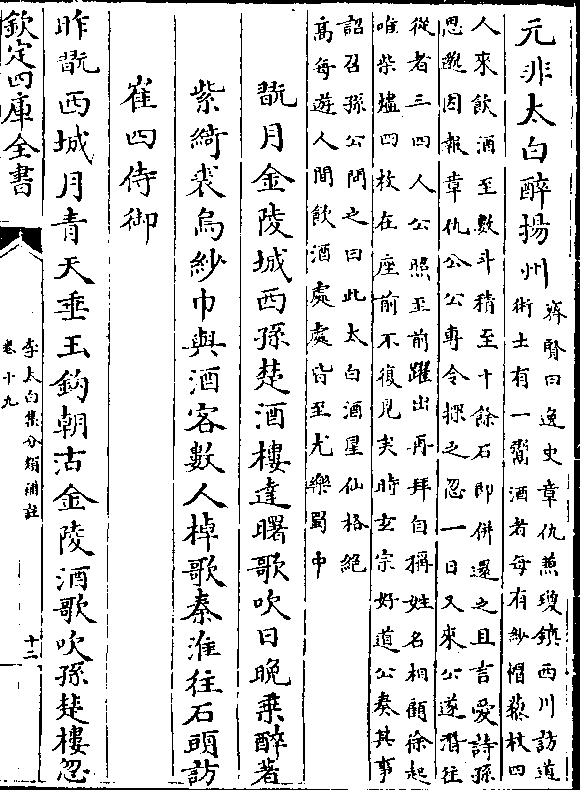 元非太白醉揚州
齊賢曰逸史章仇兼瓊鎮西川訪道
術士有一鬻酒者每有紗帽藜杖四
人來飲酒至數斗積至十餘石即併還之且言愛詩孫
思邈因報章仇公公専令探之忽一日又來公遂潛往
從者三四人公照至前躍出再拜自稱姓名相顧徐起
唯柴爐四枚在座前不復見矣時玄宗好道公奏其事
詔召孫公問之曰此太白酒星仙格絕
高每遊人間飲酒處處皆至尤樂蜀中
翫月金陵城西孫楚酒樓達曙歌吹日晚乗醉著
紫綺裘烏紗巾與酒客數人棹歌秦淮往石頭訪
崔四侍御
昨翫西城月青天垂玉鈎朝沽金陵酒歌吹孫楚樓忽
欽定四庫全書
李太白集分類補註
卷十九
十二